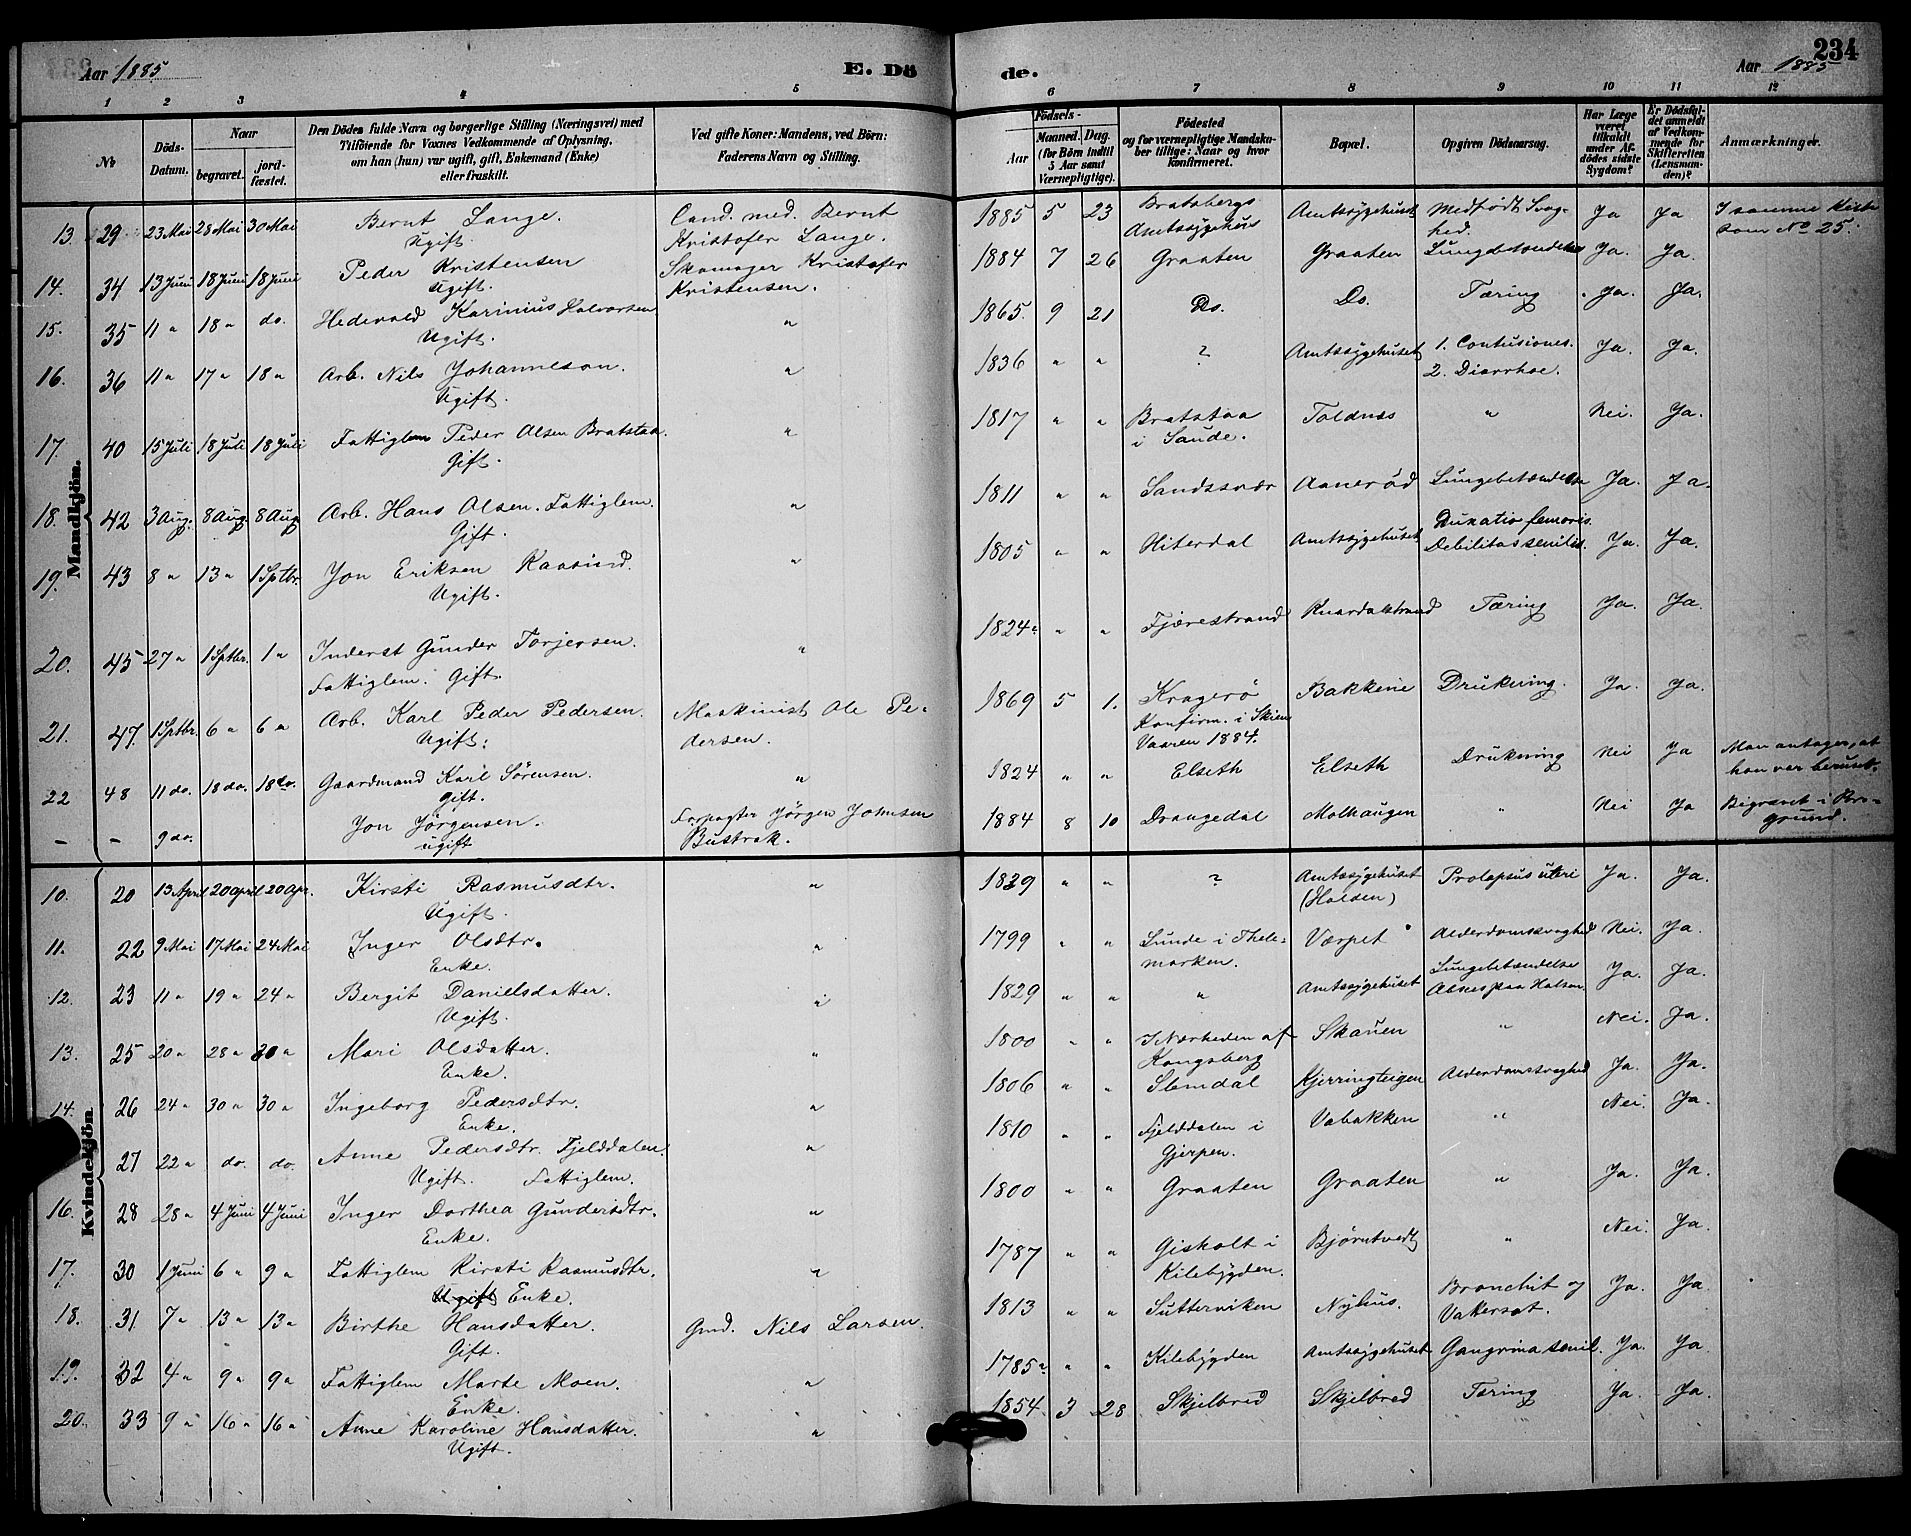 Aar 1885
E. Dö
de.
Aar 1885
234
1 2 3 4 5 6 7 8 9 10 11 12
No
Döds-Datum.
Naar
begravet.
jordfæstet.
Den Dödes fulde Navn og borgerlige Stilling (Næringsvei) med
Tilföiende for Voxnes Vedkommende af Oplysning,
om han (hun) var ugift, gift, Enkemand (Enke)
eller fraskilt.
Ved gifte Koner: Mandens, ved Börn:
Faderens Navn og Stilling.
Födsels-
Aar
Maaned. Dag.
(for Börn indtil
5 Aar samt
Værnepligtige).
Födested
og for værnepligtige Mandskaber tillige: Naar og hvor
konfirmeret.
Bopæl.
Opgiven Dödsaarsag.
Har Læge
været
tilkaldt
under Afdödes sidste
Sygdom?
Er Dödsfaldet anmeldt
af Vedkommende for
Skifteretten
(Lensmanden)?
Anmærkninger.
Mandkjön.
13. 29 23 Mai 28 Mai 30 Mai Bernt Lange. Cand. med. Bernt 1885 5 23 Bratsbergs Amtssygehuset Medfødt Svag- Ja Ja I samme Kiste
Ugift. Kristofer Lange. Amtssygehus hed. som No 25.
14. 34 13 Juni 18 Juni 18 Juni Peder Kristensen Skomager Kristofer 1884 7 26 Graaten Graaten Ja. Ja.
Ugift. Kristensen.
15. 35 11 " 18 " do. Hedevald Karinius Halvorsen " 1865. 9 21 Do. Do. Tæring Ja. Ja.
Ugift.
16. 36 11 " 17 " 18 " Arb. Nils Johanneson. " 1836 " " ? Amtssygehuset 1. Contusiones. Ja. Ja.
Ugift. 2. Diarrhoe.
17. 40 15 Juli 18 Juli 18 Juli Fattiglem Peder Olsen Bratstaa. " 1817 " " Bratstaa Toldnæs " Nei. Ja.
Gift. i Saude.
18. 42 3 Aug. 8 Aug. 8 Aug Arb. Hans Olsen. Fattiglem. " 1811 " " Sandssvær Aanerød Lungebetændelse Ja. Ja.
Gift.
19. 43 8 " 13 " 1 Sptbr. Jon Eriksen Kaasind. " 1805 " " Hiterdal Amtssygehuset femoris. Ja. Ja.
Ugift. Debilitas senilis.
20. 45 27 " 1 Sptbr. 1 " Inderst Gunder Torjersen. " 1824 " " Fjærestrand Knardalstrand Tæring Ja. Ja.
Fattiglem. Gift.
21. 47. 1 Sptbr. 6 " 6 " Arb. Karl Peder Pedersen. Maskinist Ole Pe- 1869 5 1. Kragerö Bakkene Drukning. Ja. Ja.
Ugift. dersen. Konfirm. i Skien
Vaaren 1884.
22 48 11 do. 18 do. 18 do. Gaardmand Karl Sörensen. " 1824 " " Elseth Elseth Drukning Nei Ja Man antager, at
Gift. han var beruset.
- - 9 do. Jon Jörgensen. Forpagter Jörgen Johnsen 1884 8 10 Drangedal Molhaugen " Nei Ja Begravet i Por-
ugift Bustrak. grund.
Kvindekjön
10. 20 13 April 20 April 20 Apr. Kirsti Rasmusdtr. " 1829 " " ? Amtssygehuset Prolapsus uteri Ja. Ja.
Ugift. (Holden)
11. 22 9 Mai 17 Mai 24 Mai Inger Olsdtr. " 1799 " " Lunde i Thele- Værpet Alderdomssvaghed Nei. Ja.
Enke. marken.
12. 23 11 " 19 " 24 " Bergit Danielsdatter. " 1829 " " " Amtssygehuset Lungebetændelse Ja. Ja.
Ugift. Absces paa Halsen.
13. 25 20 " 28 " 30 " Mari Olsdatter. " 1800 " " I Nærheden af Skauen " Nei. Ja.
Enke. Kongsberg
14. 26 24 " 30 " 30 " Ingeborg Pedersdtr. " 1806 " " Slemdal Kjerringteigen Alderdomssvaghed Ja. Ja.
Enke.
27 22 " do. do. Anne Pedersdtr. Fjelddalen. " 1810 " " Fjelddalen i Vabakken " Nei. Ja.
Ugift. Fattiglem. Gjerpen.
16. 28 28 " 4 Juni 4 Juni Inger Dorthea Gundersdtr. " 1800 " " Graaten Graaten " Ja. Ja.
Enke.
17. 30 1 Juni 6 " 9 " Fattiglem Kirsti Rasmusdtr. " 1787 " " Gisholt i Bjørntvedt " Nei. Ja.
Ugift Enke. Kilebygden.
18. 31 7 " 13 " 13 " Birthe Hansdatter. Gmd. Nils Larsen. 1813 " " Sutterviken Nyhus. Bronchit og Ja. Ja.
Gift. Vatersot.
19. 32 4 " 9 " 9 " Fattiglem Marte Moen. " 1785 " " Kilebygden Amtssygehuset Gangræna senil. Ja. Ja.
Enke.
20. 33 9 " 16 " 16 " Anne Karoline Hansdatter. " 1854. 3 28 Skjelbred Skjelbred Tæring Ja. Ja.
Ugift.